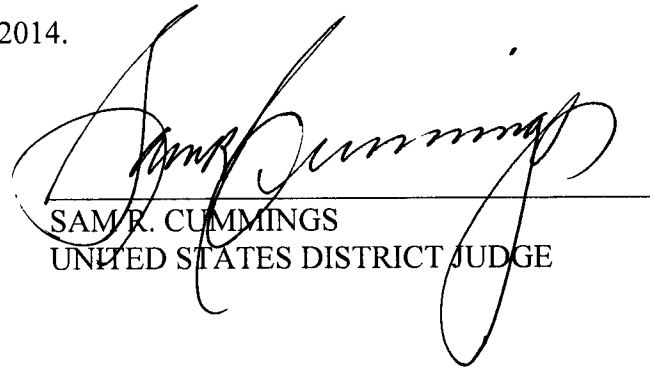 2014.
Sam R Cummings
SAM R. CUMMINGS
UNITED STATES DISTRICT JUDGE